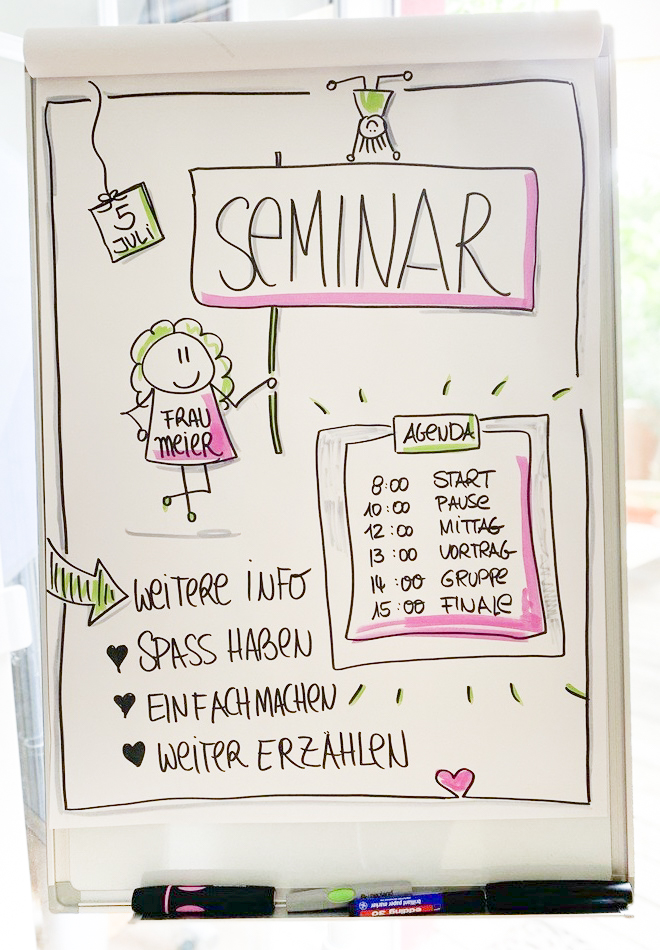 5
JULI
SEMINAR
FRAU
MEIER
AGENDA
8:00 START
10:00 PAUSE
12:00 MITTAG
13:00 VORTRAG
14:00 GRUPPE
15:00 FINALE
WEITERE INFO
SPASS HABEN
EINFACH MACHEN
WEITER ERZÄHLEN
edding 30
brilliant paper marker